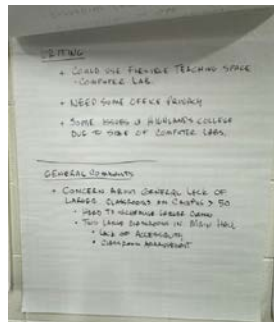 WRITING
+ COULD USE FLEXIBLE TEACHING SPACE
- COMPUTER LAB.
+ NEED SOME OFFICE PRIVACY
+ SOME ISSUES @ HIGHLANDS COLLEGE
DUE TO SIZE OF COMPUTER LABS.
GENERAL COMMENTS
+ CONCERN ABOUT GENERAL LACK OF
LARGER CLASSROOMS ON CAMPUS > 50
• HARD TO SCHEDULE LARGER
• TWO LARGE CLASSROOMS IN MAIN HALL
• LACK OF ACCESSIBILITY
• CLASSROOM ARRANGEMENT